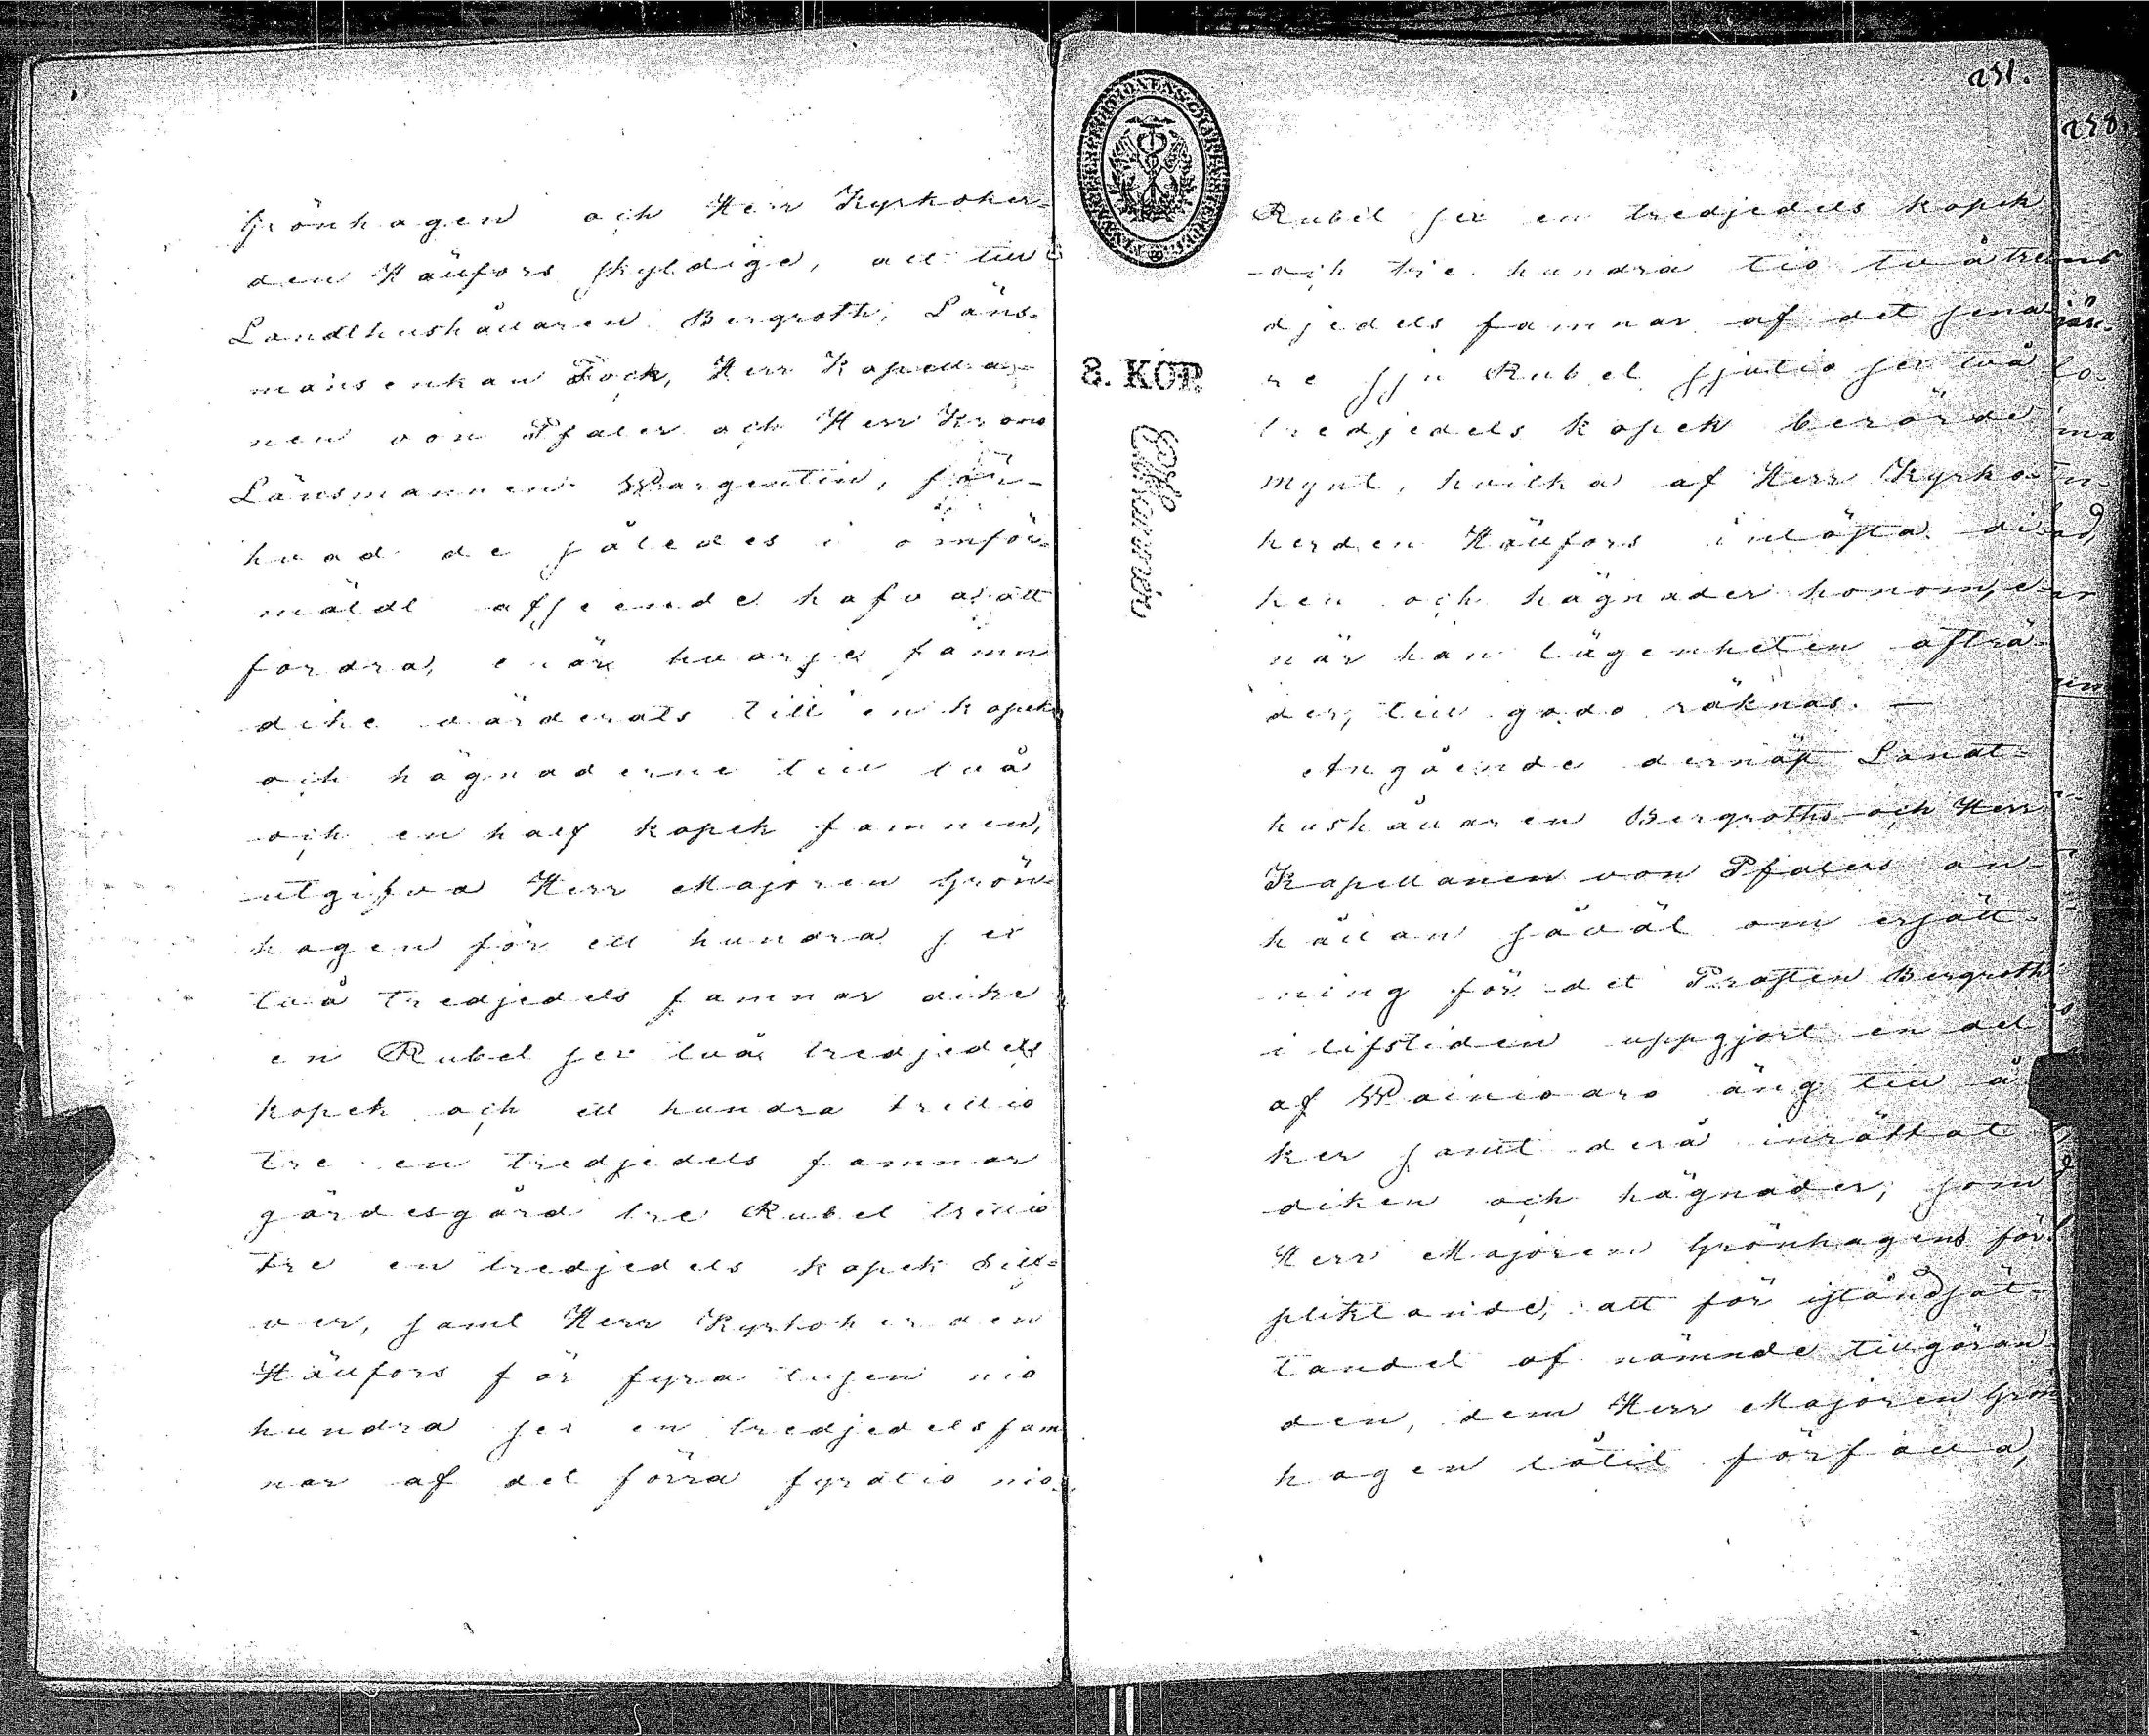 Grönhagen och Herr Kyrkoher-
den Hällfors skyldige, att till
Landthushållaren Bergroth, Läns-
mansenkan Fock, Herr Kapella-
nen von Pfaler och Herr Krono
Länsmannen Wargentin, för
hvad de således i omför-
mäldt afseende hafva att
fordra, enär hvarje famn
dike värderats till en kopek
och hägnaderne till två
och en half kopek famnen,
utgifva Herr Majoren Grön-
hagen för ett hundra sex
två tredjedels famnar dike
en Rubel sex två tredjedels
kopek och ett hundra trettio
tre en tredjedels famnar
gärdesgård tre Rubel trettio
tre en tredjedels kopek Silf-
ver, samt Herr Kyrkoherden
Hällfors för fyra tusen nio
hundra sex en tredjedels fam
nar af det förra fyratio nio
251.
258.
Rubel sex en tredjedels kopek
och tre hundra tio två tre
djedels famnar af det sena
re sju Rubel sjutio sex två
8. KOP.
tredjedels kopek berörde
mynt, hvilka af Herr Kyrko-
herden Hällfors inlösta di
ken och hägnader honom, e-
när han lägenheten afträ-
der, till godo räknas. —
Angående dernäst Landt-
hushållaren Bergroths och Herr
Kapellanen von Pfalers an-
hållan såväl om ersätt-
ning för det Prosten Bergroth
i lifstiden uppgjort en del
af Wainioaro äng till å
ker samt derå inrättat
diken och hägnader, som
Herr Majoren Grönhagens för
pliktande, att för iståndsät-
tandet af nämnde tillgöran-
den, dem Herr Majoren Grön
hagen låtit förfalla,